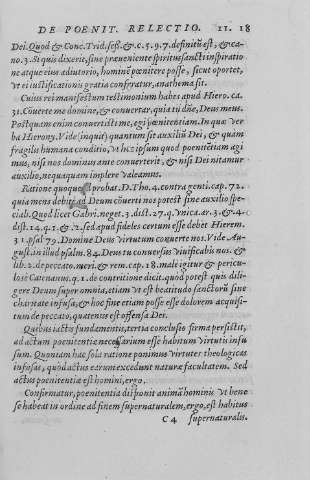 DE POENIT. RELECTIO. 11. 18
Dei. Quod & Conc. Trid. seß. 6. c. 5. 9. 7. definitũ est, & ca-
no. 3. Si quis dixerit, sine praeueniente spiritus sancti inspiratio
ne atque eius adiutorio, hominẽ poenitere posse, sicut oportet,
vt ei iustificationis gratia conferatur, anathema sit.
Cuius rei manifestum testimonium habes apud Hiero. ca.
31. Cõuerte me domine, & conuertar, quia tu dñe, Deus meus.
Postquam enim conuertisti me, egi poenitentiam. In qua ver
ba Hierony. Vide (inquit) quantum sit auxiliũ Dei, & quam
fragilis humana conditio, vt hoc ipsum quod poenitentiam agi
mus, nisi nos dominus ante conuerterit, & nisi Dei nitamur
auxilio, nequaquam implere valeamus.
Ratione quoque probat. D. Tho. 4. contra genti. cap. 72.
quia mens debita ad Deum cõuerti nos potest sine auxilio spe-
ciali. Quod licet Gabri. neget. 3. dist. 27. q. vnica. ar. 3. & 4.
dist. 14. q. 1. & 2. sed apud fideles certum esse debet Hierem.
31. psal. 79. Domine Deus virtutum conuerte nos. Vide Au-
gust. in illud psalm. 84. Deus tu conuersus viuificabis nos. &
lib. 2. de peccato. meri. & rem. cap. 18. male igitur & pericu-
lose Catharin. q. 1. de contritione dicit. quod potest quis dili-
gere Deum super omnia, etiam vt est beatitudo sanctorũ sine
charitate infusa, & hoc fine etiam posse esse dolorem acquisi-
tum de peccato, quatenus est offensa Dei.
Quibus iactis fundamentis, tertia conclusio firma persistit,
ad actum poenitentiae necessarium esse habitum virtutis infu
sum. Quoniam hac sola ratione ponimus virtutes theologicas
infusas, quòd actus earum excedunt naturae facultatem. Sed
actus poenitentiae est homini, ergo.
Confirmatur, poenitentia disponit animã homini vt bene
se habeat in ordine ad finem supernaturalem, ergo, est habitus
C 4 supernaturalis.